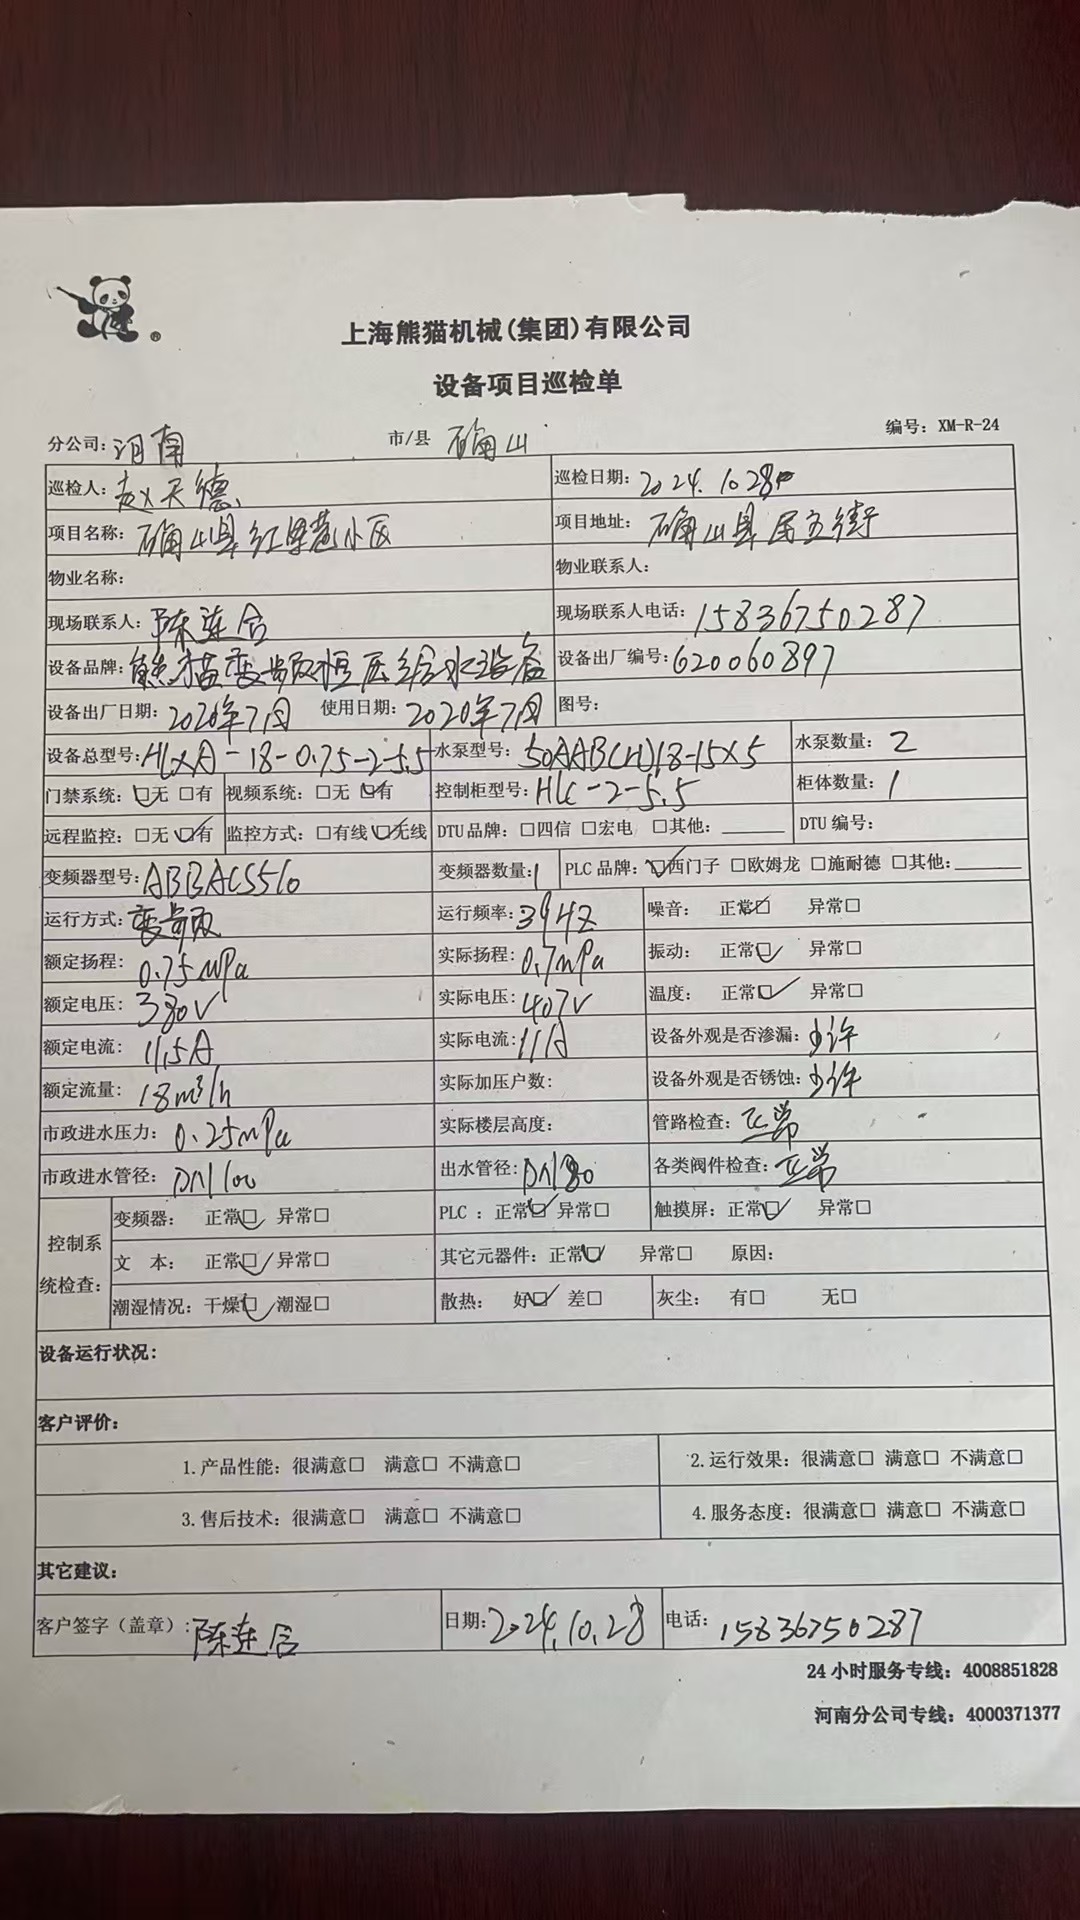 上海熊猫机械(集团)有限公司
设备项目巡检单
分公司: 河南 市/县 确山 编号: XM-R-24
巡检人: 赵天德 巡检日期: 2024.10.28
项目名称: 确山县红星苑小区 项目地址: 确山县
物业名称: 物业联系人:
现场联系人: 陈连合 现场联系人电话: 15836750287
设备品牌: 熊猫变频恒压给水设备 设备出厂编号: 620060897
设备出厂日期: 2020年7月 使用日期: 2020年7月 图号:
设备总型号: HLXA-18-0.75-2-5.5 水泵型号: 50AAB(H)18-15X5 水泵数量: 2
门禁系统: ☑无 □有 视频系统: □无 ☑有 控制柜型号: HLC-2-5.5 柜体数量: 1
远程监控: □无 ☑有 监控方式: □有线 ☑无线 DTU品牌: □四信 □宏电 □其他: DTU编号:
变频器型号: ABBACS510 变频器数量: 1 PLC品牌: ☑西门子 □欧姆龙 □施耐德 □其他:
运行方式: 变频 运行频率: 39HZ 噪音: 正常☑ 异常□
额定扬程: 0.75MPa 实际扬程: 0.7MPa 振动: 正常☑ 异常□
额定电压: 380V 实际电压: 407V 温度: 正常☑ 异常□
额定电流: 11.5A 实际电流: 11A 设备外观是否渗漏: 少许
额定流量: 18m³/h 实际加压户数: 设备外观是否锈蚀: 少许
市政进水压力: 0.25MPa 实际楼层高度: 管路检查: 正常
市政进水管径: DN100 出水管径: DN80 各类阀件检查: 正常
控制系统检查: 变频器: 正常☑ 异常□ PLC: 正常☑ 异常□ 触摸屏: 正常☑ 异常□
文 本: 正常☑ 异常□ 其它元器件: 正常☑ 异常□ 原因:
潮湿情况: 干燥☑ 潮湿□ 散热: 好☑ 差□ 灰尘: 有□ 无□
设备运行状况:
客户评价:
1.产品性能: 很满意□ 满意□ 不满意□ 2.运行效果: 很满意□ 满意□ 不满意□
3.售后技术: 很满意□ 满意□ 不满意□ 4.服务态度: 很满意□ 满意□ 不满意□
其它建议:
客户签字(盖章): 陈连合 日期: 2024.10.28 电话: 15836750287
24小时服务专线: 4008851828
河南分公司专线: 4000371377